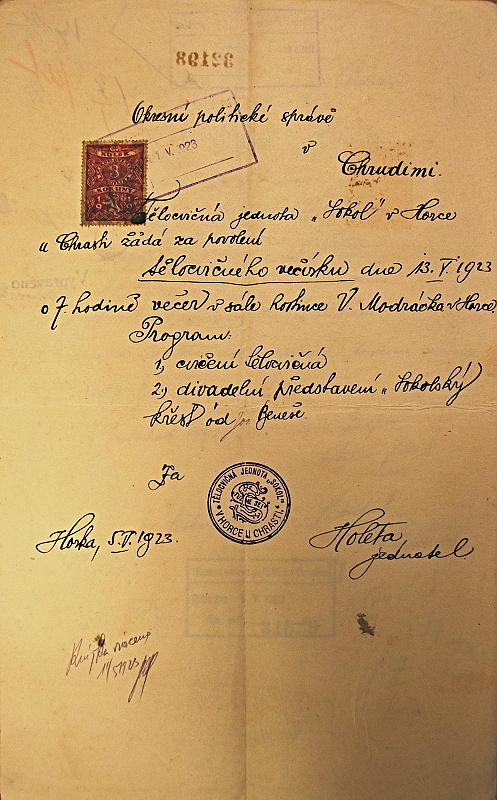 32198
Okresní politické správě
v
Chrudimi.
V. 1923
KOLEK
3
KORUNY
Tělocvičná jednota „Sokol" v Horce
u Chrasti žádá za povolení
tělocvičného večírku dne 13.V.1923
o 7. hodině večer v sále hostince V. Modráčka v Horce.
Program:
1, cvičení tělocvičná
2, divadelní představení „Sokolský
křest" od Jos Beneše.
Za
TĚLOCVIČNÁ JEDNOTA „SOKOL"
V HORCE U CHRASTI.
Horka, 5.V.1923.
Holeta
jednatel.
vráceno
11/5 1923
Vypraveno